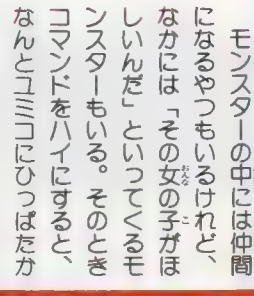 モンスターの中には仲間
になるやつもいるけれど、
なかには「その女の子がほ
しいんだ」といってくるモ
ンスターもいる。そのとき
コマンドをハイにすると、
なんとユミコにひっぱたか